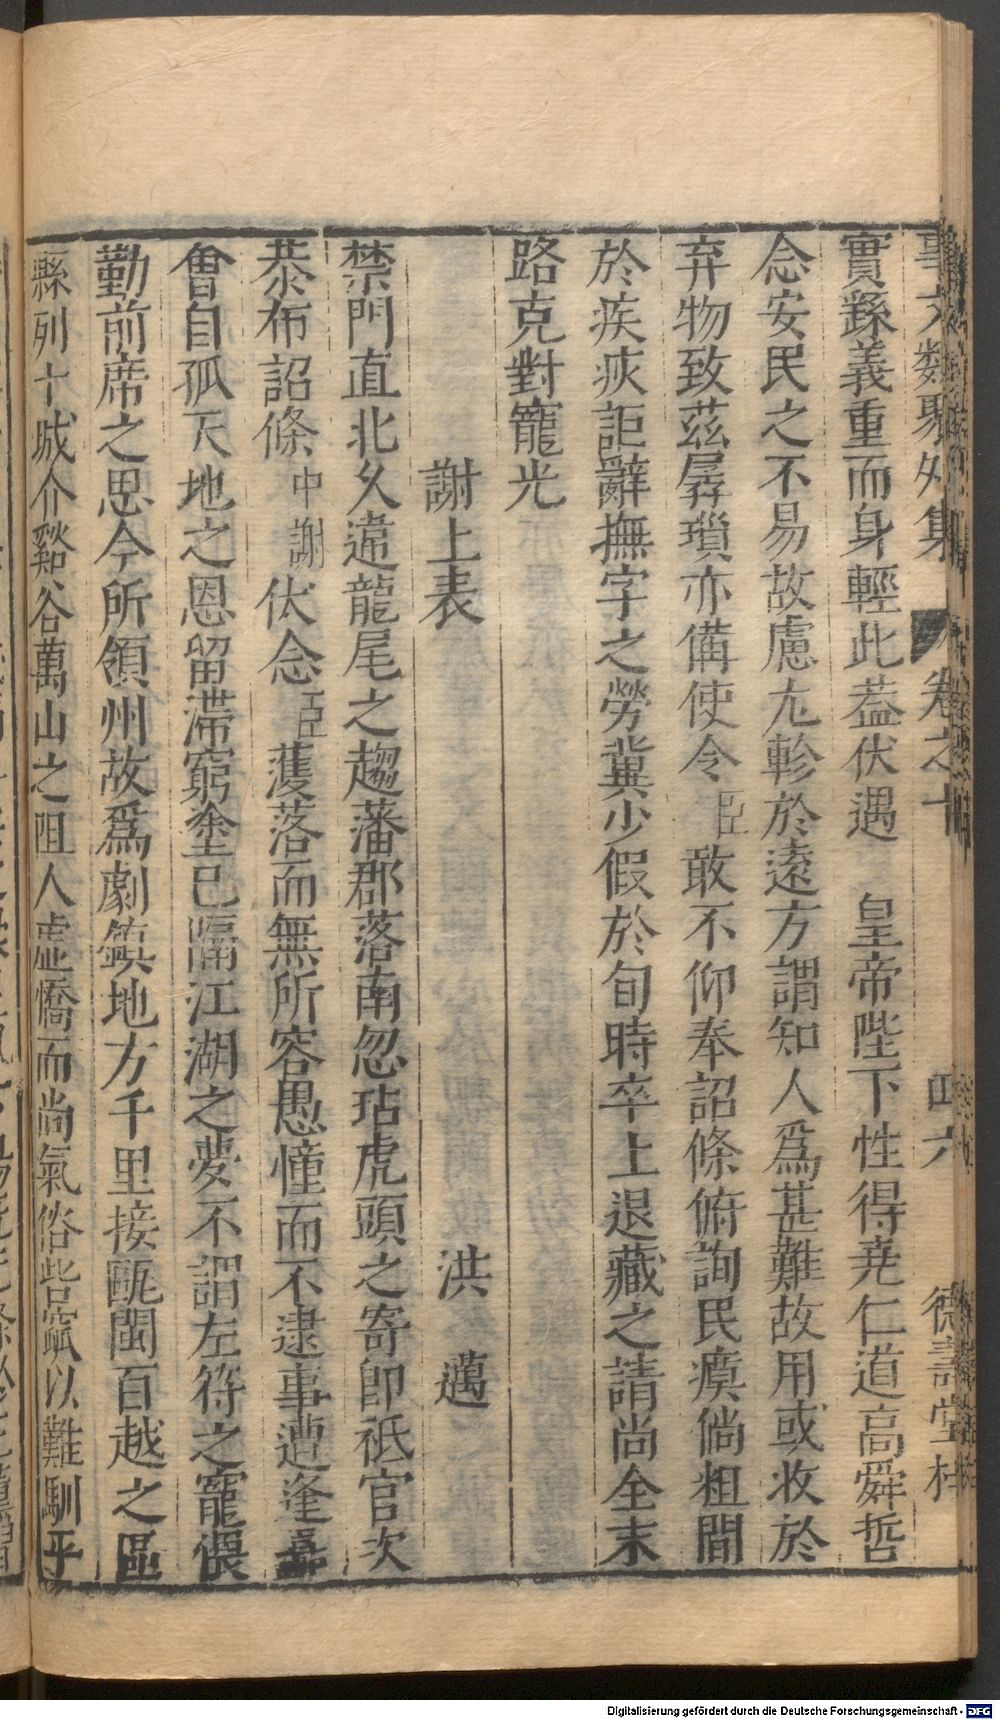 事文類聚外集 卷之十 四六 德壽堂梓
實繇義重而身輕此葢伏遇 皇帝陛下性得堯仁道高舜哲
念安民之不易故慮尤軫於遠方謂知人爲甚難故用或收於
弃物致茲孱瑣亦備使令臣敢不仰奉詔條俯詢民瘼倘粗間
於疾疢詎辭撫字之勞冀少假於旬時卒上退藏之請尚全末
路克對寵光
謝上表 洪邁
禁門直北久違龍尾之趨藩郡落南忽玷虎頭之寄卽祗官次
恭布詔條中謝伏念臣濩落而無所容愚憧而不逮事遭逢
曾自孤天地之恩留滯窮途已隔江湖之夢不謂左符之寵偎
勤前席之思今所領州故爲劇鎮地方千里接甌閩百越之區
縣列十城介谿谷萬山之阻人虛憍而尚氣俗呰窳以難馴乎
Digitalisierung gefördert durch die Deutsche Forschungsgemeinschaft - DFG